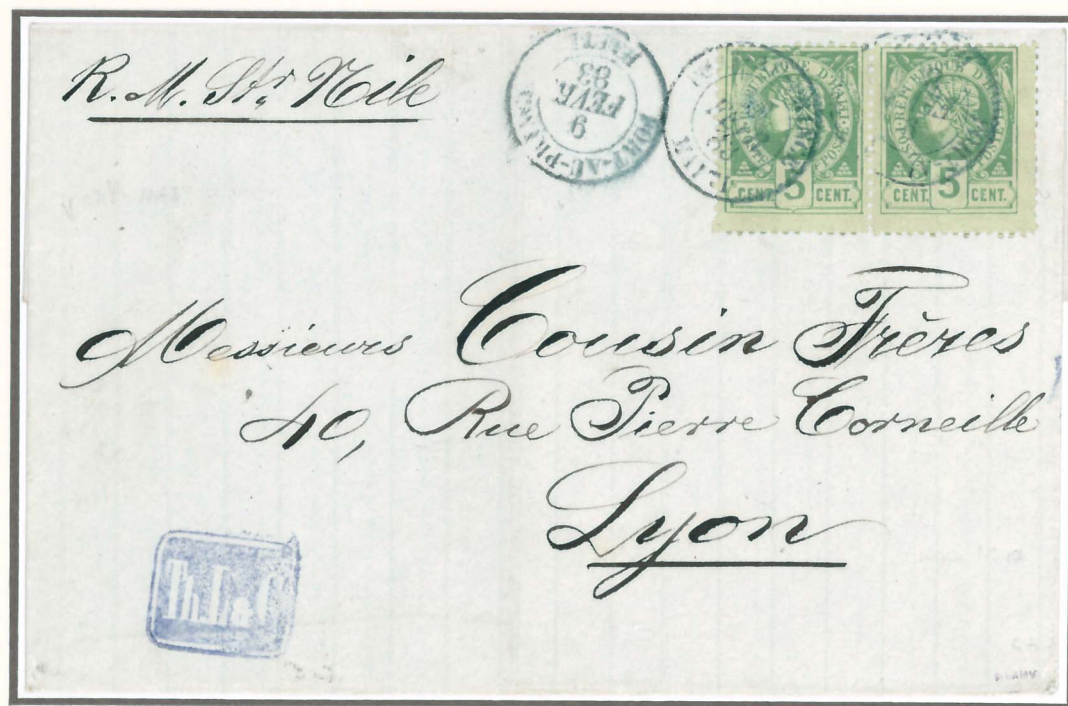 R. M. Str Nile
PORT-AU-PRINCE
9
FEVR
83
HAITI
REPUBLIQUE D'HAITI
POSTES
CENT. 5 CENT.
REPUBLIQUE D'HAITI
POSTES
CENT. 5 CENT.
Messieurs Cousin Frères
40, Rue Pierre Corneille
Lyon